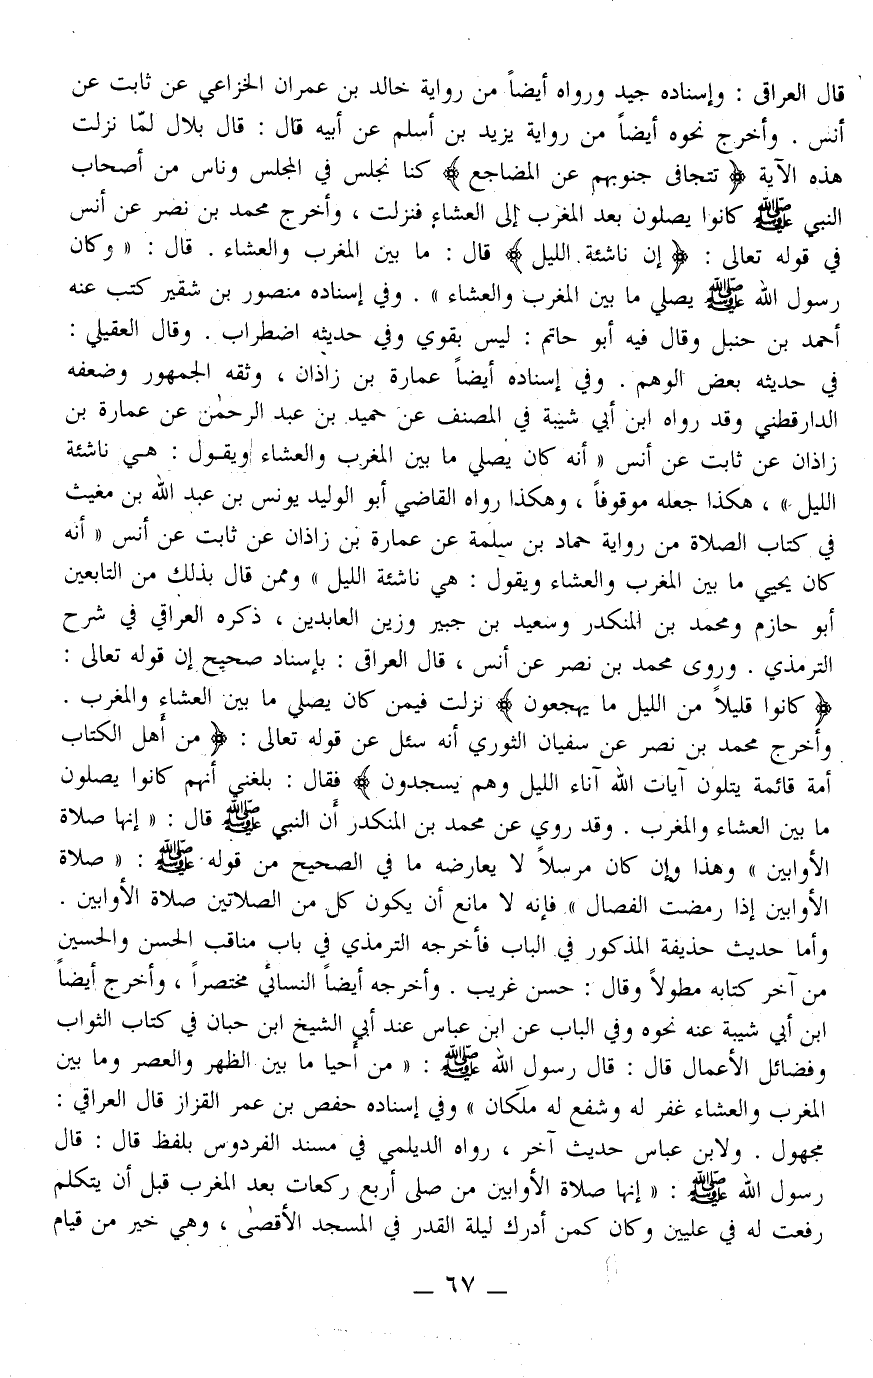 قال العراقى : وإسناده جيد ورواه أيضاً من رواية خالد بن عمران الخزاعي عن ثابت عن
أنس . وأخرج نحوه أيضاً من رواية يزيد بن أسلم عن أبيه قال : قال بلال لمّا نزلت
هذه الآية ﴿ تتجافى جنوبهم عن المضاجع ﴾ كنا نجلس في المجلس وناس من أصحاب
النبي ﷺ كانوا يصلون بعد المغرب إلى العشاء فنزلت ، وأخرج محمد بن نصر عن أنس
في قوله تعالى : ﴿ إن ناشئة الليل ﴾ قال : ما بين المغرب والعشاء . قال : « وكان
رسول الله ﷺ يصلي ما بين المغرب والعشاء » . وفي إسناده منصور بن شقير كتب عنه
أحمد بن حنبل وقال فيه أبو حاتم : ليس بقوي وفي حديثه اضطراب . وقال العقيلي :
في حديثه بعض الوهم . وفي إسناده أيضاً عمارة بن زاذان ، وثقه الجمهور وضعفه
الدارقطني وقد رواه ابن أبي شيبة في المصنف عن حميد بن عبد الرحمٰن عن عمارة بن
زاذان عن ثابت عن أنس « أنه كان يصلي ما بين المغرب والعشاء ويقول : هي ناشئة
الليل » ، هكذا جعله موقوفاً ، وهكذا رواه القاضي أبو الوليد يونس بن عبد الله بن مغيث
في كتاب الصلاة من رواية حماد بن سلمة عن عمارة بن زاذان عن ثابت عن أنس « أنه
كان يحيي ما بين المغرب والعشاء ويقول : هي ناشئة الليل » وممن قال بذلك من التابعين
أبو حازم ومحمد بن المنكدر وسعيد بن جبير وزين العابدين ، ذكره العراقي في شرح
الترمذي . وروى محمد بن نصر عن أنس ، قال العراقى : بإسناد صحيح إن قوله تعالى :
﴿ كانوا قليلاً من الليل ما يهجعون ﴾ نزلت فيمن كان يصلي ما بين العشاء والمغرب .
وأخرج محمد بن نصر عن سفيان الثوري أنه سئل عن قوله تعالى : ﴿ من أهل الكتاب
أمة قائمة يتلون آيات الله آناء الليل وهم يسجدون ﴾ فقال : بلغني أنهم كانوا يصلون
ما بين العشاء والمغرب . وقد روي عن محمد بن المنكدر أن النبي ﷺ قال : « إنها صلاة
الأوابين » وهذا وإن كان مرسلاً لا يعارضه ما في الصحيح من قوله ﷺ : « صلاة
الأوابين إذا رمضت الفصال » فإنه لا مانع أن يكون كل من الصلاتين صلاة الأوابين .
وأما حديث حذيفة المذكور في الباب فأخرجه الترمذي في باب مناقب الحسن والحسين
من آخر كتابه مطولاً وقال : حسن غريب . وأخرجه أيضاً النسائي مختصراً ، وأخرج أيضاً
ابن أبي شيبة عنه نحوه وفي الباب عن ابن عباس عند أبي الشيخ ابن حبان في كتاب الثواب
وفضائل الأعمال قال : قال رسول الله ﷺ : « من أحيا ما بين الظهر والعصر وما بين
المغرب والعشاء غفر له وشفع له ملكان » وفي إسناده حفص بن عمر القزاز قال العراقي :
مجهول . ولابن عباس حديث آخر ، رواه الديلمي في مسند الفردوس بلفظ قال : قال
رسول الله ﷺ : « إنها صلاة الأوابين من صلى أربع ركعات بعد المغرب قبل أن يتكلم
رفعت له في عليين وكان كمن أدرك ليلة القدر في المسجد الأقصىٰ ، وهي خير من قيام
— ٦٧ —